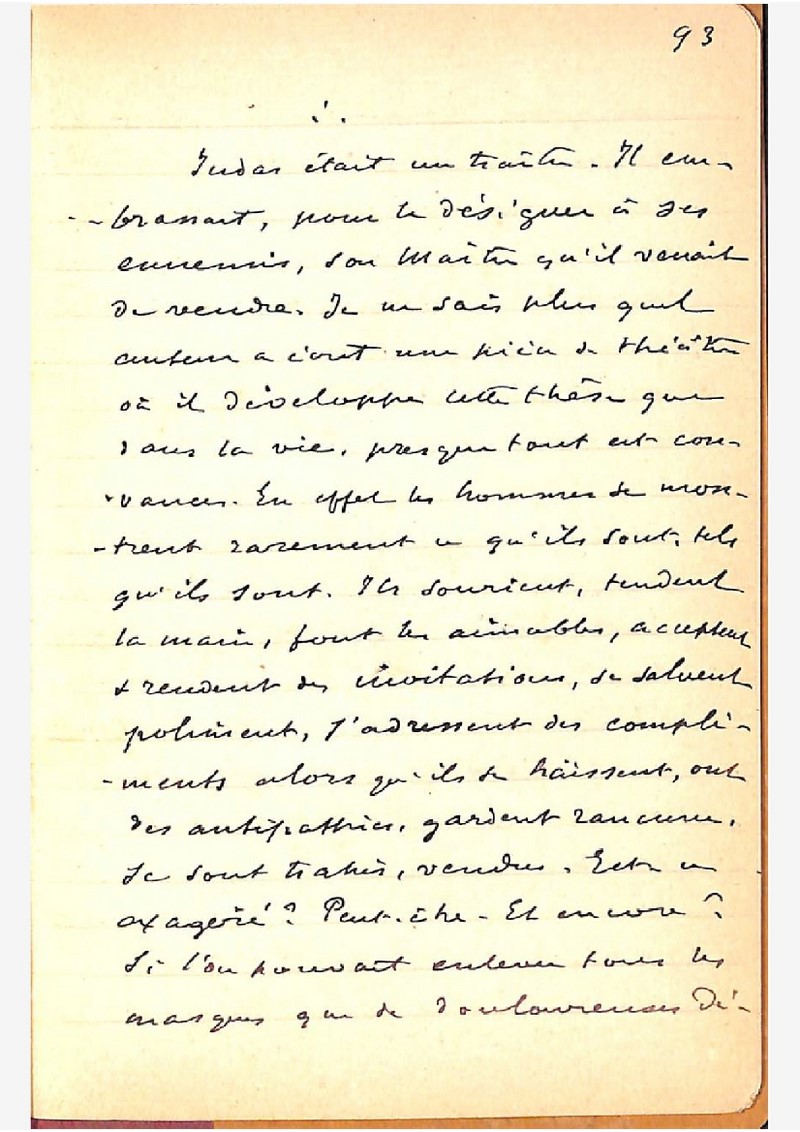 93
∴
Judas était un traître. Il em-
-brassait, pour le désigner à ses
ennemis, son Maître qu'il venait
de vendre. Je ne sais plus quel
auteur a écrit une pièce de théâtre
où il développe cette thèse que
dans la vie, presque tout est con-
-vances. En effet les hommes se mon-
-trent rarement ce qu'ils sont, tels
qu'ils sont. Ils sourient, tendent
la main, font les aimables, acceptent
& rendent des invitations, se saluent
poliment, s'adressent des compli-
-ments alors qu'ils se haïssent, ont
des antipathies, gardent rancune,
se sont trahis, vendus. Est-ce
exagéré ? Peut-être - Et encore ?
Si l'on pouvait enlever tous les
masques que de douloureuses dé-